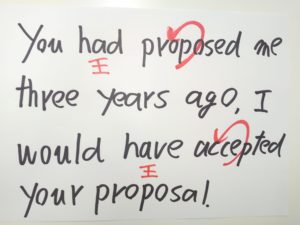 You had proposed me
three years ago, I
would have accepted
your proposal.